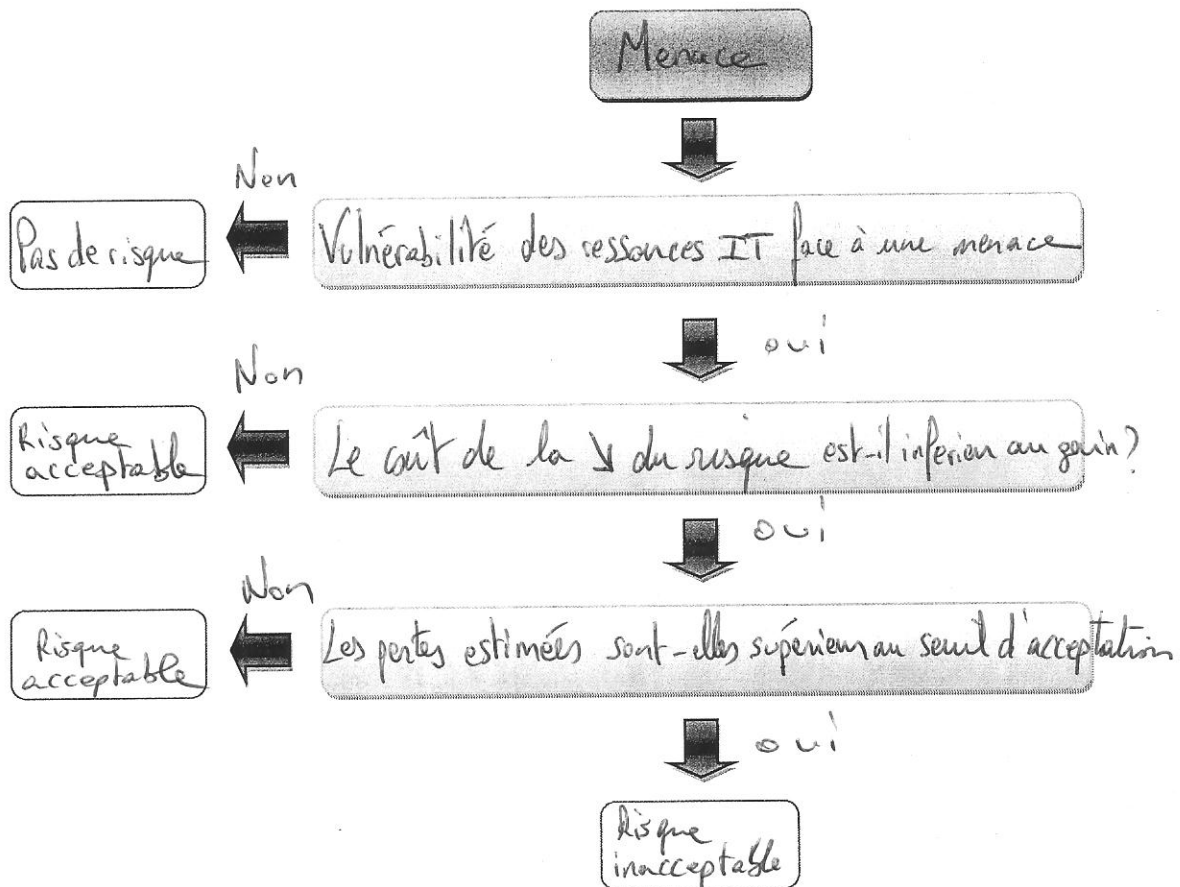 Menace
Non
Pas de risque
Vulnérabilité des ressources IT face à une menace
oui
Non
Risque
acceptable
Le coût de la ↘ du risque est-il inférieur au gain ?
oui
Non
Risque
acceptable
Les pertes estimées sont-elles supérieur au seuil d'acceptation
oui
Risque
inacceptable